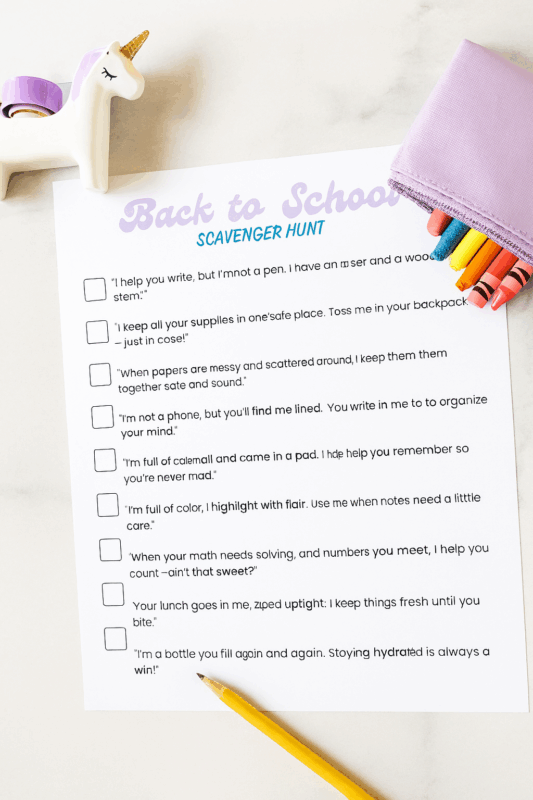 Back to School
SCAVENGER HUNT
"I help you write, but I'mnot a pen. I have an and a
stem.""
"I keep all your supplies in one'safe place. Toss me in your backpack
– just in cose!"
"When papers are messy and scattered around, I keep them them
together sate and sound."
"I'm not a phone, but you'll find me lined. You write in me to to organize
your mind."
"I'm full of and came in a pad. I help you remember so
you're never mad."
"I'm full of color, I highilght with flair. Use me when notes need a litttle
care."
"When your math needs solving, and numbers you meet, I help you
count –ain't that sweet?"
Your lunch goes in me, uptight: I keep things fresh until you
bite."
"I'm a bottle you fill again and again. Stoying hydrated is always a
win!"